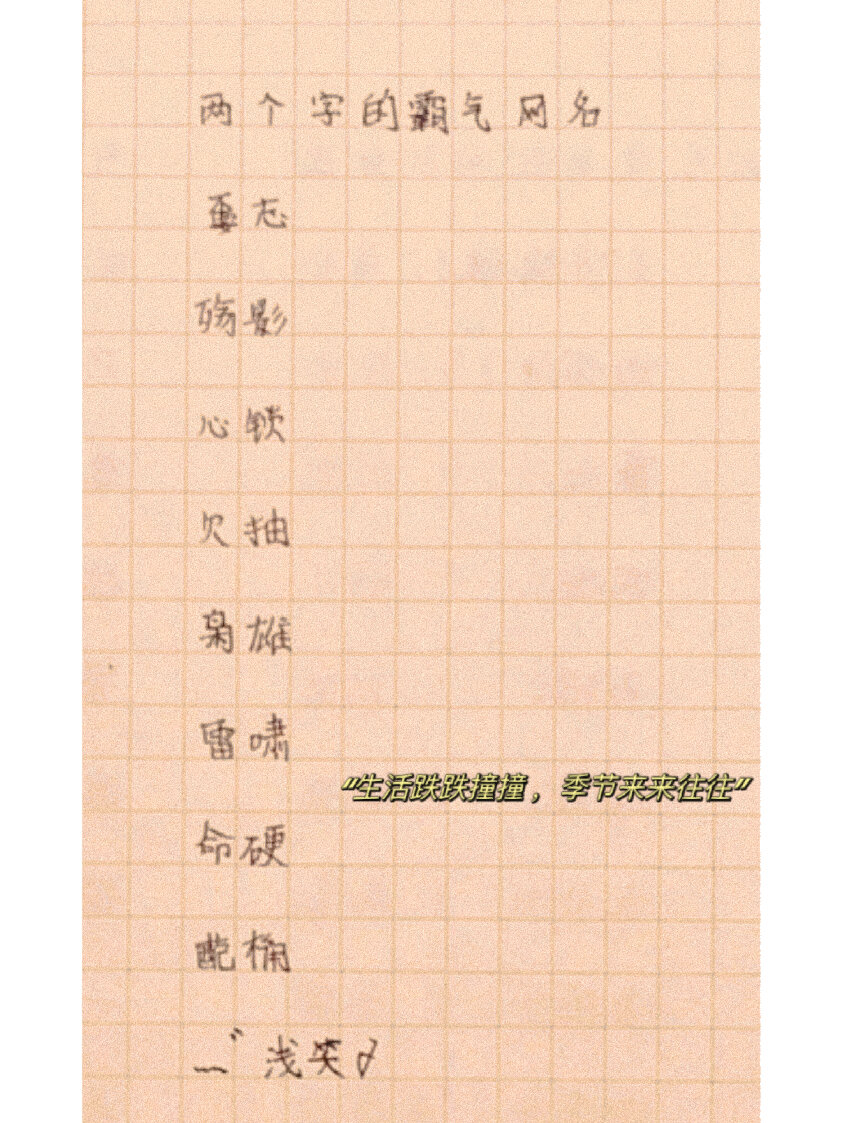 两个字的霸气网名
殇影
心锁
欠抽
枭雄
雷啸
“生活跌跌撞撞，季节来来往往”
命硬
桶
﹏゛浅笑♂